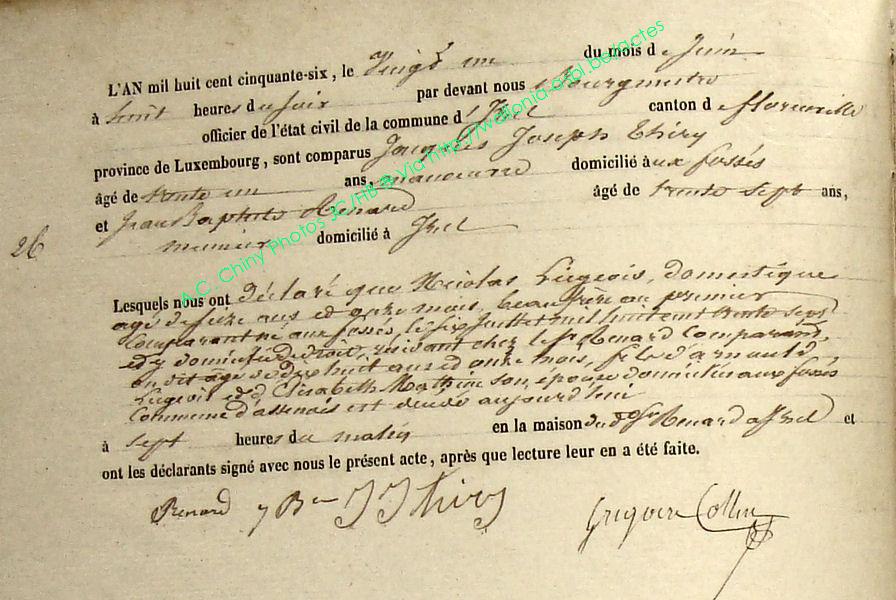 L'AN mil huit cent cinquante-six, le Vingt un du mois de Juin
à huit heures du soir par devant nous Bourgmestre
officier de l'état civil de la commune d'Izel canton de florenville
province de Luxembourg, sont comparus Jacques Joseph Thiry
âgé de trente un ans, manoeuvre domicilié aux fossés
et Jean Baptiste Renard âgé de trente sept ans,
26
meunier domicilié à Izel
Lesquels nous ont déclaré que Nicolas Liegeois, domestique
agé de seize ans et onze mois, beau frère au premier
Comparant né aux fossés, le six Juillet mil huit cent trente sept
et y domicilié de droit, résidant chez le sr Renard Comparant,
on dit âgé de dix huit ans et onze mois, fils d'arnould
Liegeois et d'Elisabeth Mathieu son épouse domiciliés aux fossés
Commune d'assenois est décédé aujourd'hui
à sept heures du matin en la maison du dit sr Renard a Izel et
ont les déclarants signé avec nous le présent acte, après que lecture leur en a été faite.
Renard J Bte J J Thiry Grigoire Collin
A.C. Chiny Photos JC/HB @ Via http://wallonia-asbl.be/actes